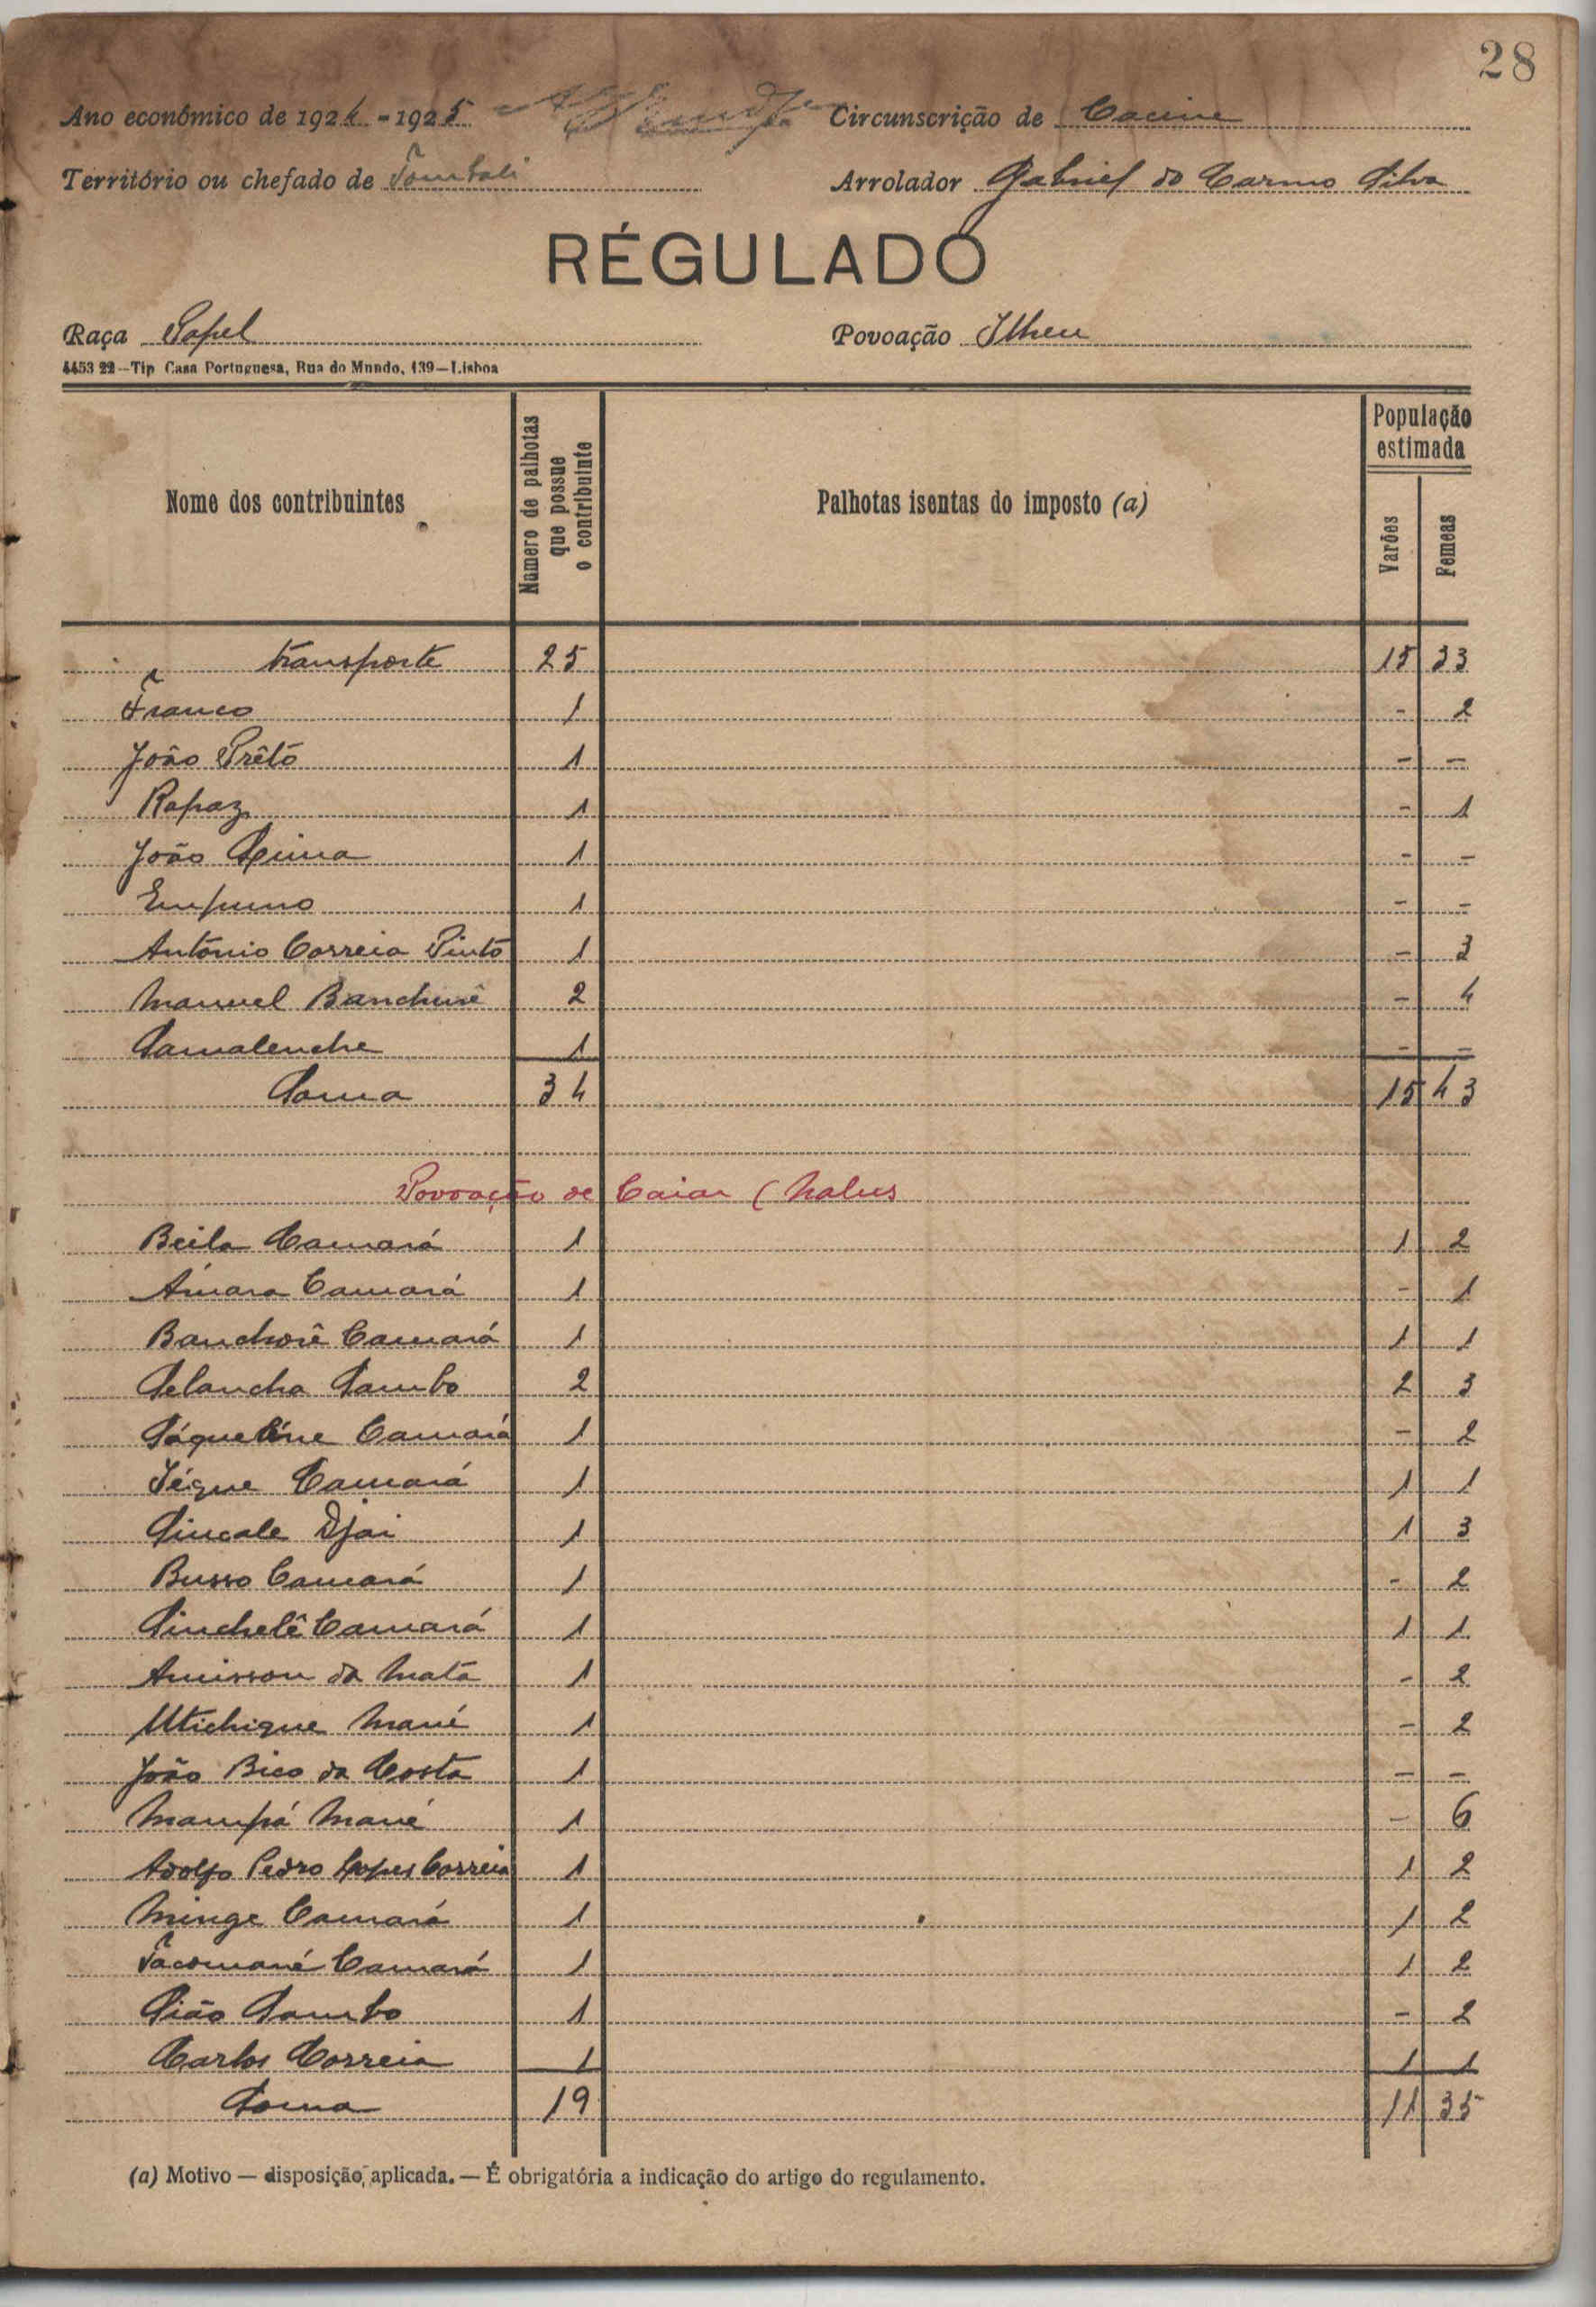 28
Ano económico de 1924-1925 Circunscrição de Cacine
Território ou chefado de Tombali Arrolador Gabriel do Carmo Silva
RÉGULADO
Raça Papel Povoação Ilheu
4453 22—Tip Casa Portuguesa, Rua do Mundo, 139—Lisboa
Nome dos contribuintes Número de palhotas que possue o contribuinte Palhotas isentas do imposto (a) População estimada Varões Femeas
transporte 25 15 33
Franco 1 - 2
João Prêto 1 - -
Rapaz 1 - 1
João 1 - -
1 - -
António Correia Pinto 1 - 3
Manuel 2 - 4
Samalenche 1 - -
Soma 34 15 43
Povoação de Caiar (Nalus
Beila Camará 1 1 2
Amara Camará 1 - 1
Banchorê Camará 1 1 1
Selancha Sambo 2 2 3
Camará 1 - 2
Séque Camará 1 1 1
Sincale Djai 1 1 3
Busso Camará 1 - 2
Sinchelê Camará 1 1 1
da Mata 1 - 2
Mané 1 - 2
João Bico da Costa 1 - -
Mampá Mané 1 - 6
Adolfo Pedro Lopes Correia 1 1 2
Minge Camará 1 1 2
Tacomané Camará 1 1 2
Sião Sambo 1 - 2
Carlos Correia 1 1 1
Soma 19 11 35
(a) Motivo — disposição, aplicada. — É obrigatória a indicação do artigo do regulamento.